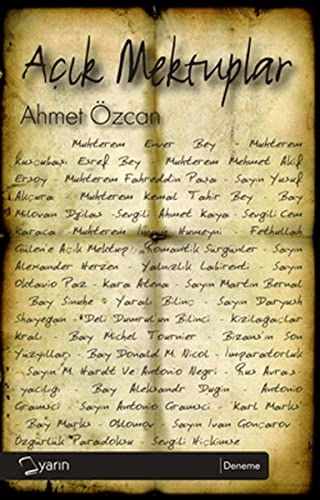 Açık Mektuplar
Ahmet Özcan
Muhterem Enver Bey - Muhterem
Kuşçubaşı Eşref Bey - Muhterem Mehmet Akif
Ersoy - Muhterem Fahreddin Paşa - Sayın Yusuf
Akçura - Muhterem Kemal Tahir Bey Bay
Milovan Djilas -Sevgili Ahmet Kaya - Sevgili Cem
Karaca - Muhterem İmam Humeyni - Fethullah
Gülen'e Açık Mektup - Romantik Sürgünler - Sayın
Alexander Herzen - Yalnızlık Labirenti - Sayın
Oktavio Paz - Kara Atena - Sayın Martin Bernal
- Bay Sinuhe - Yaralı Bilinç - Sayın Daryush
Shayegan - Deli Dumrul'un Bilinci - Kızılağaçlar
Kralı - Bay Michel Tournier - Bizans'ın Son
Yüzyılları - Bay Donald M. Nicol - İmparatorluk
- Sayın M. Hardt Ve Antonio Negri - Rus Avras-
yacılığı - Bay Aleksandr Dugin - Antonio
Gramsci - Sayın Antonio Gramsci - 'Karl Marks'
- Bay Marks - Oblomov - Sayın Ivan Gonçarov
Özgürlük Paradoksu - Sevgili Hiçkimse
yarın
Deneme